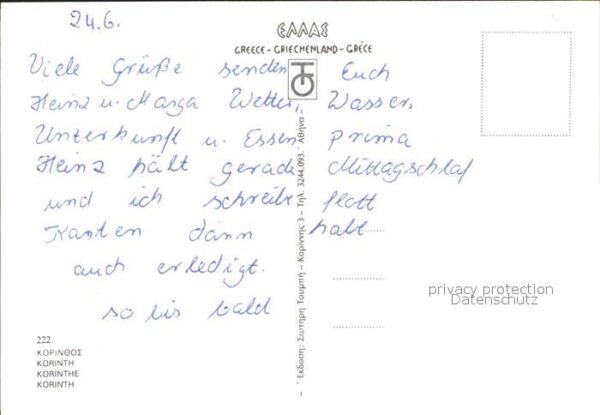 24.6.
ΕΛΛΑΣ
GREECE - GRIECHENLAND - GRÈCE
Viele Grüße senden Euch
Heinz u. Marga Wetter, Wasser,
Unterkunft u. Essen prima
Heinz hält gerade Mittagschlaf
und ich schreibe flott
Karten dann halt
auch erledigt.
so bis bald
privacy protection
Datenschutz
222
ΚΟΡΙΝΘΟΣ
KORINTH
KORINTHE
KORINTH
Έκδοση: Σωτήρη Τουμπή – Κορίννης 3 – Τηλ. 3244.093. Αθήνα